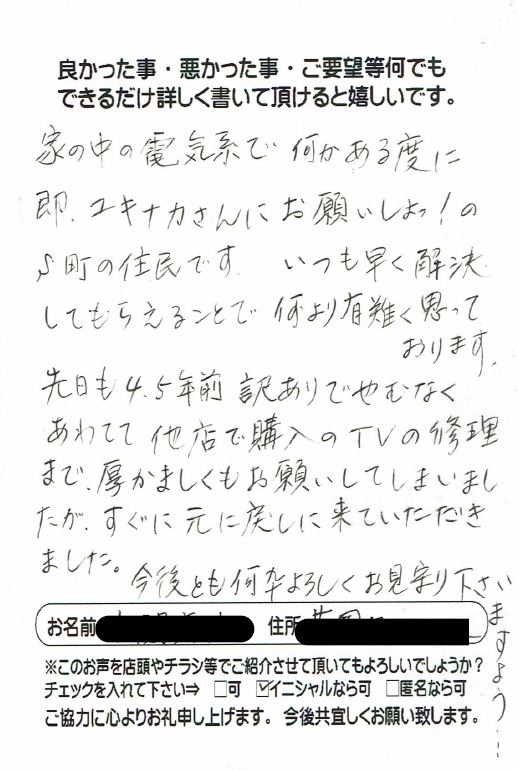 良かった事・悪かった事・ご要望等何でも
できるだけ詳しく書いて頂けると嬉しいです。
家の中の電気系で 何かある度に
即、ユキナカさんにお願いしよっ!の
S町の住民です. いつも早く解決
してもらえることで 何より有難く思って
おります.
先日も 4.5年前 訳ありでやむなく
あわてて 他店で購入のTVの修理
まで、厚かましくもお願いしてしまいまし
たが、すぐに元に戻しに来ていただき
ました。
今後とも何卒よろしくお見守り下さい
ますよう…
お名前
住所
※このお声を店頭やチラシ等でご紹介させて頂いてもよろしいでしょうか?
チェックを入れて下さい⇒ □可 ☑イニシャルなら可 □匿名なら可
ご協力に心よりお礼申し上げます。今後共宜しくお願い致します。